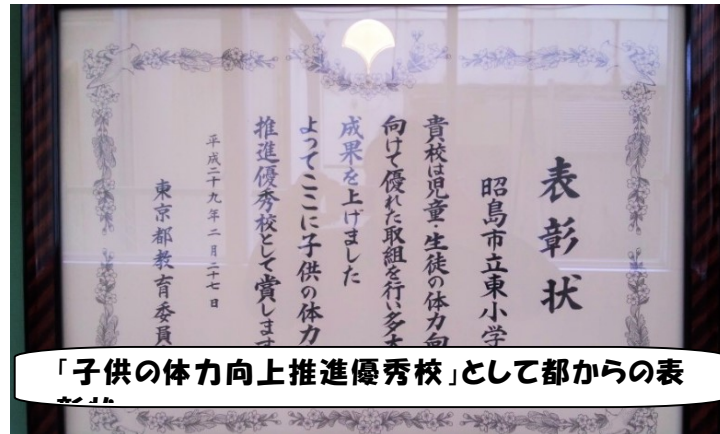 表彰状
昭島市立東小学
貴校は児童・生徒の体力向
向けて優れた取組を行い多大
成果を上げました
よってここに子供の体力
推進優秀校として賞します
平成二十九年二月二十七日
東京都教育委員
「子供の体力向上推進優秀校」として都からの表